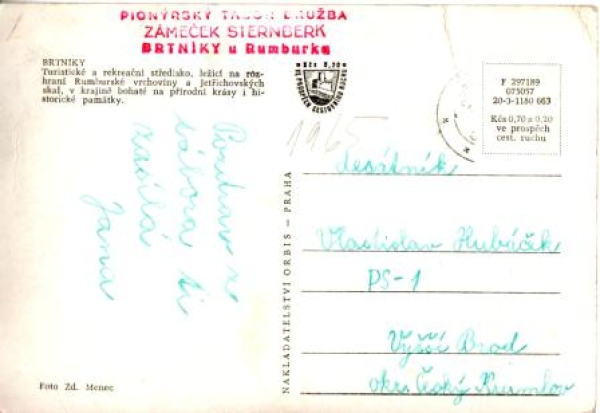 PIONÝRSKÝ TÁBOR DRUŽBA
ZÁMEČEK STERNBERK
BRTNÍKY u Rumburka
BRTNÍKY
Turistické a rekreační středisko, ležící na roz-
hraní Rumburské vrchoviny a Jetřichovských
skal, v krajině bohaté na přírodní krásy i hi-
storické památky.
Kčs 0,20
VE PROSPĚCH CESTOVNÍHO RUCHU
F 297189
075057
20-3-1180 663
Kčs 0,70 a 0,20
ve prospěch
cest. ruchu
1965
Pozdrav z
tábora ti
zasílá
Jana
NAKLADATELSTVÍ ORBIS – PRAHA
desátník
Vlastislav Hubáček
PS-1
Vyšší Brod
okr. Český Krumlov
Foto Zd. Menec